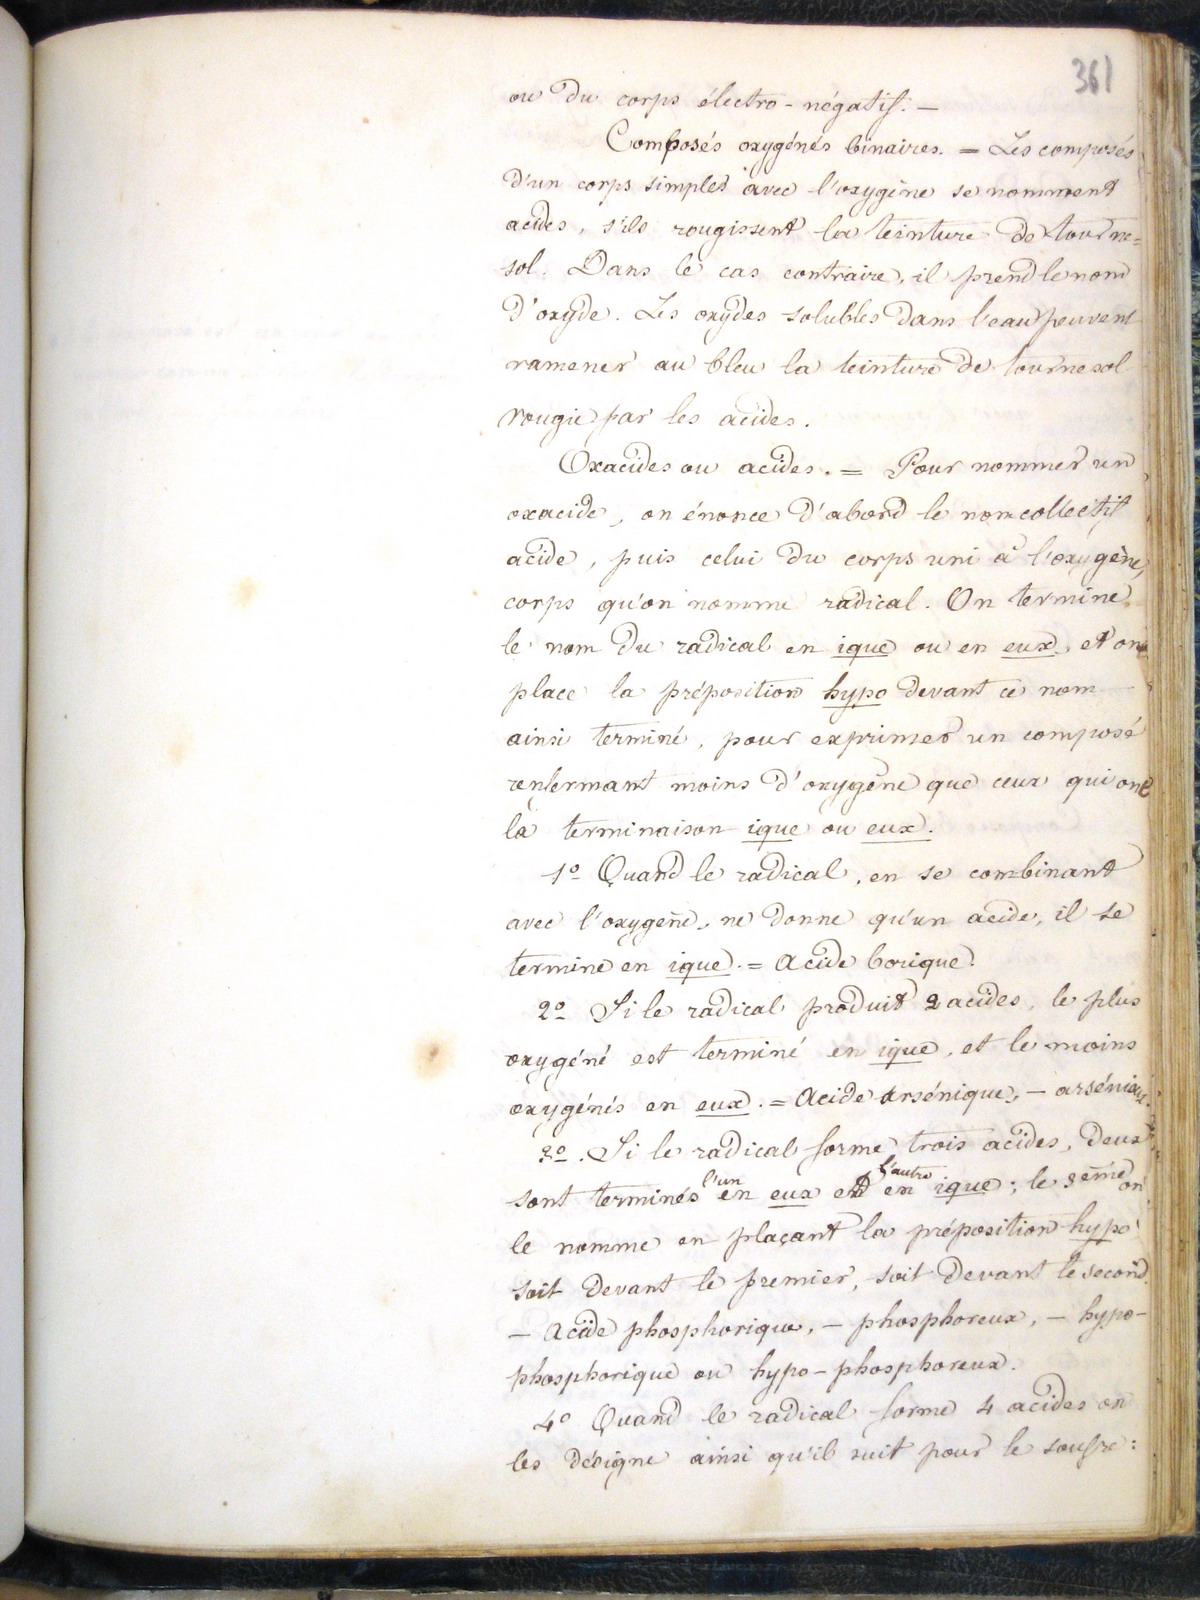 361
ou du corps électro-négatif. —
Composés oxygénés binaires. = Les composés
d'un corps simples avec l'oxygène se nomment
acides, s'ils rougissent la teinture de tourne=
sol. Dans le cas contraire, il prend le nom
d'oxyde. Les oxydes solubles dans l'eau peuvent
ramener au bleu la teinture de tournesol
rougie par les acides.
Oxacides ou acides. = Pour nommer un
oxacide, on énonce d'abord le nom collectif
acide, puis celui du corps uni à l'oxygène,
corps qu'on nomme radical. On termine
le nom du radical en ique ou en eux, et on
place la préposition hypo devant ce nom
ainsi terminé, pour exprimer un composé
renfermant moins d'oxygène que ceux qui ont
la terminaison ique ou eux.
1º Quand le radical, en se combinant
avec l'oxygène, ne donne qu'un acide, il se
termine en ique. = Acide borique.
2º Si le radical produit 2 acides, le plus
oxygéné est terminé en ique, et le moins
oxygénés en eux. = Acide arsénique, — arsénieux.
3º. Si le radical forme trois acides, deux
sont terminés l'un en eux et l'autre en ique; le 3ème on
le nomme en plaçant la préposition hypo
soit devant le premier, soit devant le second.
— Acide phosphorique, — phosphoreux, — hypo-
phosphorique ou hypo-phosphoreux.
4º Quand le radical forme 4 acides on
les désigne ainsi qu'il suit pour le soufre: